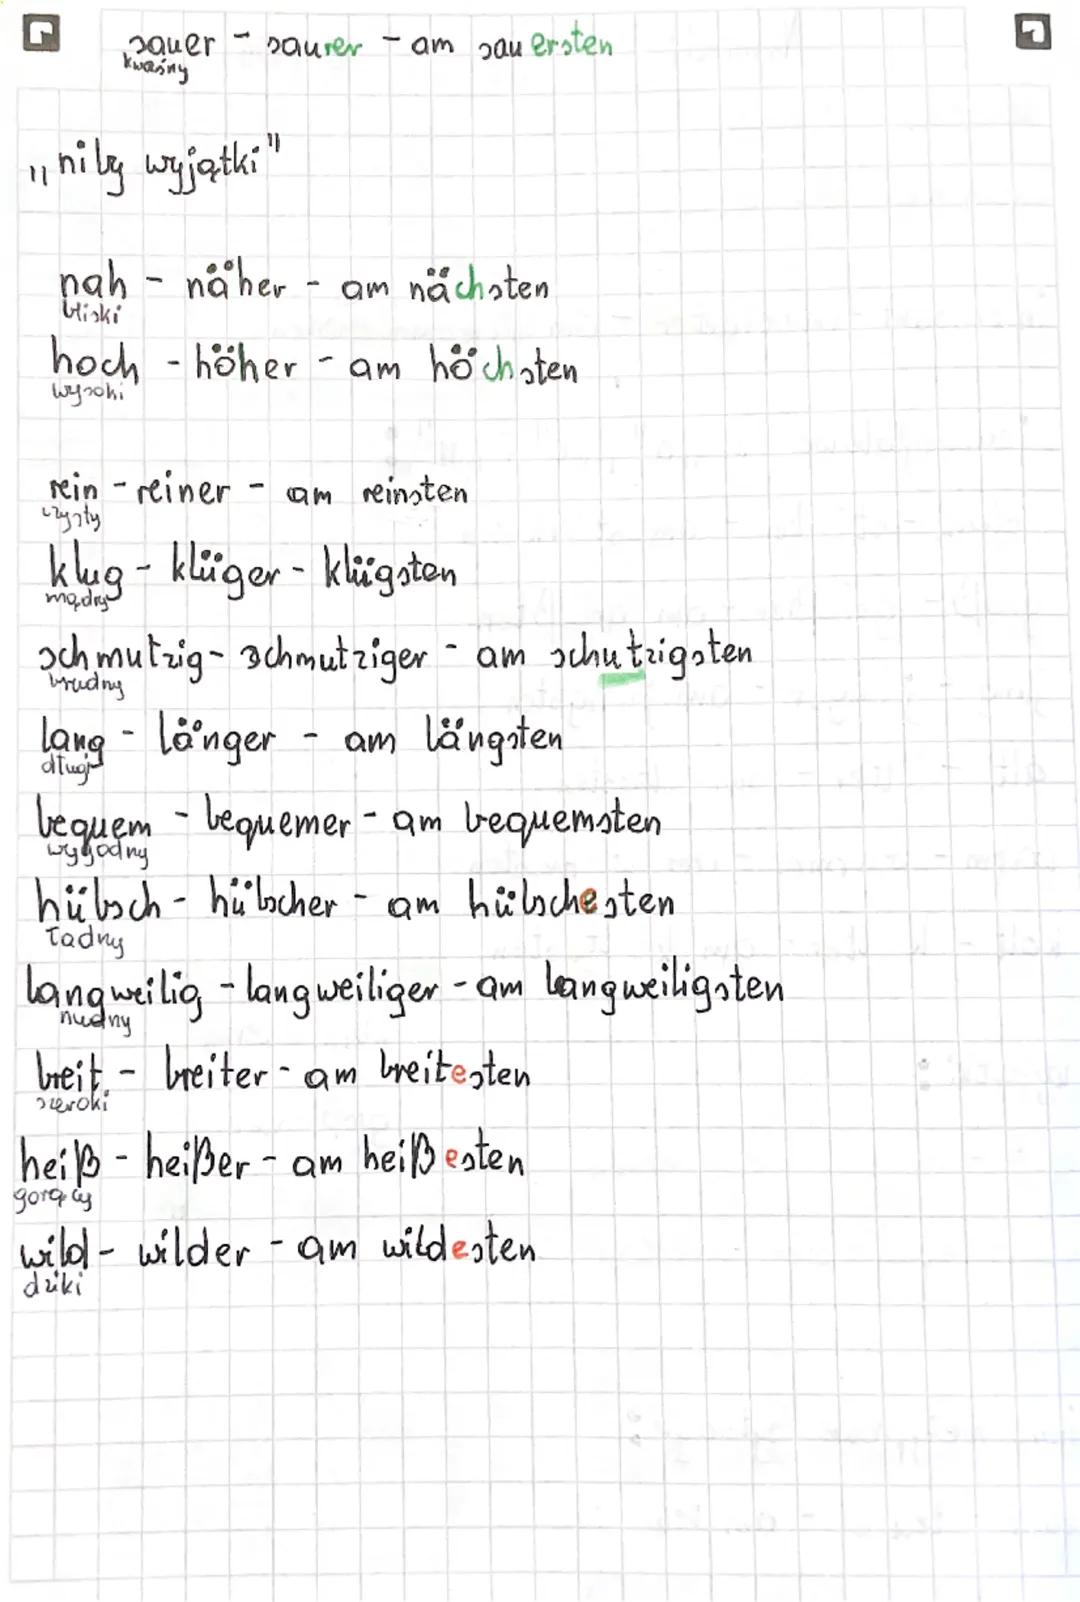 sauer - saurer - am sauersten
kwaśny
„niby wyjątki"
nah - näher - am nächsten
bliski
hoch - höher - am höchsten
wysoki
rein - reiner - am reinsten
czysty
klug - klüger - klügsten
mądry
schmutzig - schmutziger - am schutzigsten
brudny
lang - länger - am längsten
długi
bequem - bequemer - am bequemsten
wygodny
hübsch - hübscher - am hübschesten
ładny
langweilig - langweiliger - am langweiligsten
nudny
breit - breiter - am breitesten
szeroki
heiß - heißer - am heißesten
gorący
wild - wilder - am wildesten
dziki